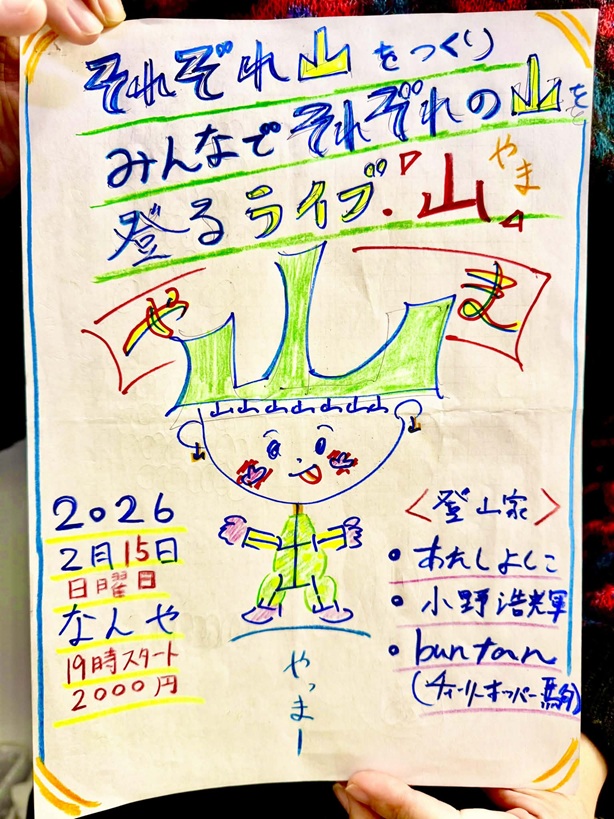 それぞれ山をつくり
みんなでそれぞれの山を
登るライブ.『山』
やま
や
ま
山山山山山山山
2026
2月15日
日曜日
なんや
19時スタート
2000円
やっまー
〈登山家〉
• あれしよしこ
• 小野浩輝
• buntan